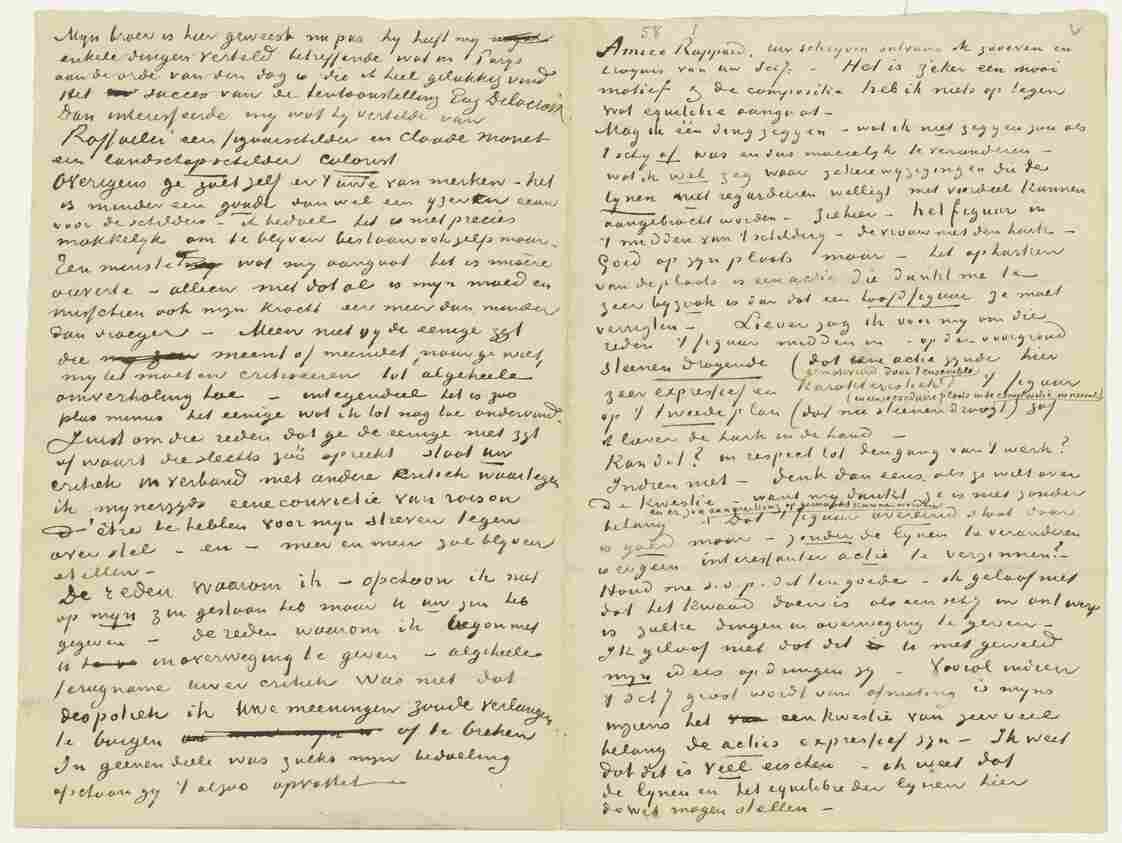 Mijn broer is hier geweest nu pas hij heeft mij
enkele dingen verteld betreffende wat in Parijs
aan de orde van den dag is die ik heel gelukkig vond
Het succes van de tentoonstelling Eug Delacroix.
Dan interesseerde mij wat hij vertelde van
Raffaelli een figuurschilder en Claude Monet
een landschapschilder colorist
Overigens ge zult zelf er 't uwe van merken – het
is minder een goude dan wel een yzeren eeuw
voor de schilders – ik bedoel het is niet precies
makkelijk om te blijven bestaan ook zelfs maar. –
Ten minste wat mij aangaat het is misère
ouverte – alleen met dat al is mijn moed en
misschien ook mijn kracht eer meer dan minder
dan vroeger – Meen niet gij de eenige zijt
die meent of meendet, naar ge weet
mij te moeten critiseeren tot algeheele
omverhaling toe – integendeel het is zoo
plus minus het eenige wat ik tot nog toe ondervind.
Juist om die reden dat ge de eenige niet zijt
of waart die slechts zóó spreekt staat uw
critiek in verband met andere kritiek waartegen
ik mijnerzijds eene convictie van raison
d'être te hebben voor mijn streven tegen
over stel – en – meer en meer zoo blijven
stellen –
De reden waarom ik – ofschoon ik niet
op mijn zin gestaan heb maar U uw zin heb
gegeven – de reden waarom ik begon met
U in overweging te geven – algeheele
terugname uwer critiek was niet dat
despotiek ik Uwe meeningen zoude verlangen
te buigen of te breken
In geenen deele was zulks mijn bedoeling
ofschoon gij 't alzoo opvattet –
58
Amice Rappard, uw schrijven ontvang ik zooeven en
croquis van uw schij. – Het is zeker een mooi
motief & de compositie heb ik niets op tegen
wat equilibre aangaat –
Mag ik één ding zeggen – wat ik niet zeggen zou als
't schij af was en dus moeielijk te veranderen –
wat ik wel zeg waar zekere wijzigingen die de
lynen niet regarderen welligt met voordeel kunnen
aangebragt worden – ziehier – het figuur in
't midden van 't schilderij – de vrouw met den hark –
Goed op zyn plaats maar – het opharken
van de plaats is een actie die dunkt me te
zeer bijzaak is dan dat een hoofdfiguur ze moet
verrigten – Liever zag ik voor mij om die
reden 't figuur midden in op den voorgrond
steenen dragende (dat eene actie zijnde hier
gemotiveerd door 't ensemble
zeer expressief en karakteristiek) 't figuur
op 't tweede plan (dat nu steenen draagt) zag
ik liever de hark in de hand –
Kan dit? in respect tot den gang van 't werk?
Indien niet – denk dan eens als ge wilt over
de kwestie – want mij dunkt ze is niet zonder
belang
't Dat 't figuur overeind staat daar
is goed maar – zonder de lynen te veranderen
is er geen interessanter actie te verzinnen? –
Houd me s.v.p. dit ten goede – ik geloof niet
dat het kwaad doen is als een schij in ontwerp
is zulke dingen in overweging te geven –
Ik geloof niet dat dit U met geweld
mijn idees opdringen zij – Vooral indien
't schij groot wordt van afmeting is mijns
inziens het een kwestie van zeer veel
belang de acties expressief zijn – Ik weet
dat dit is veel eischen – ik weet dat
de lynen en het equilibre der lynen hier
de wet mogen stellen –